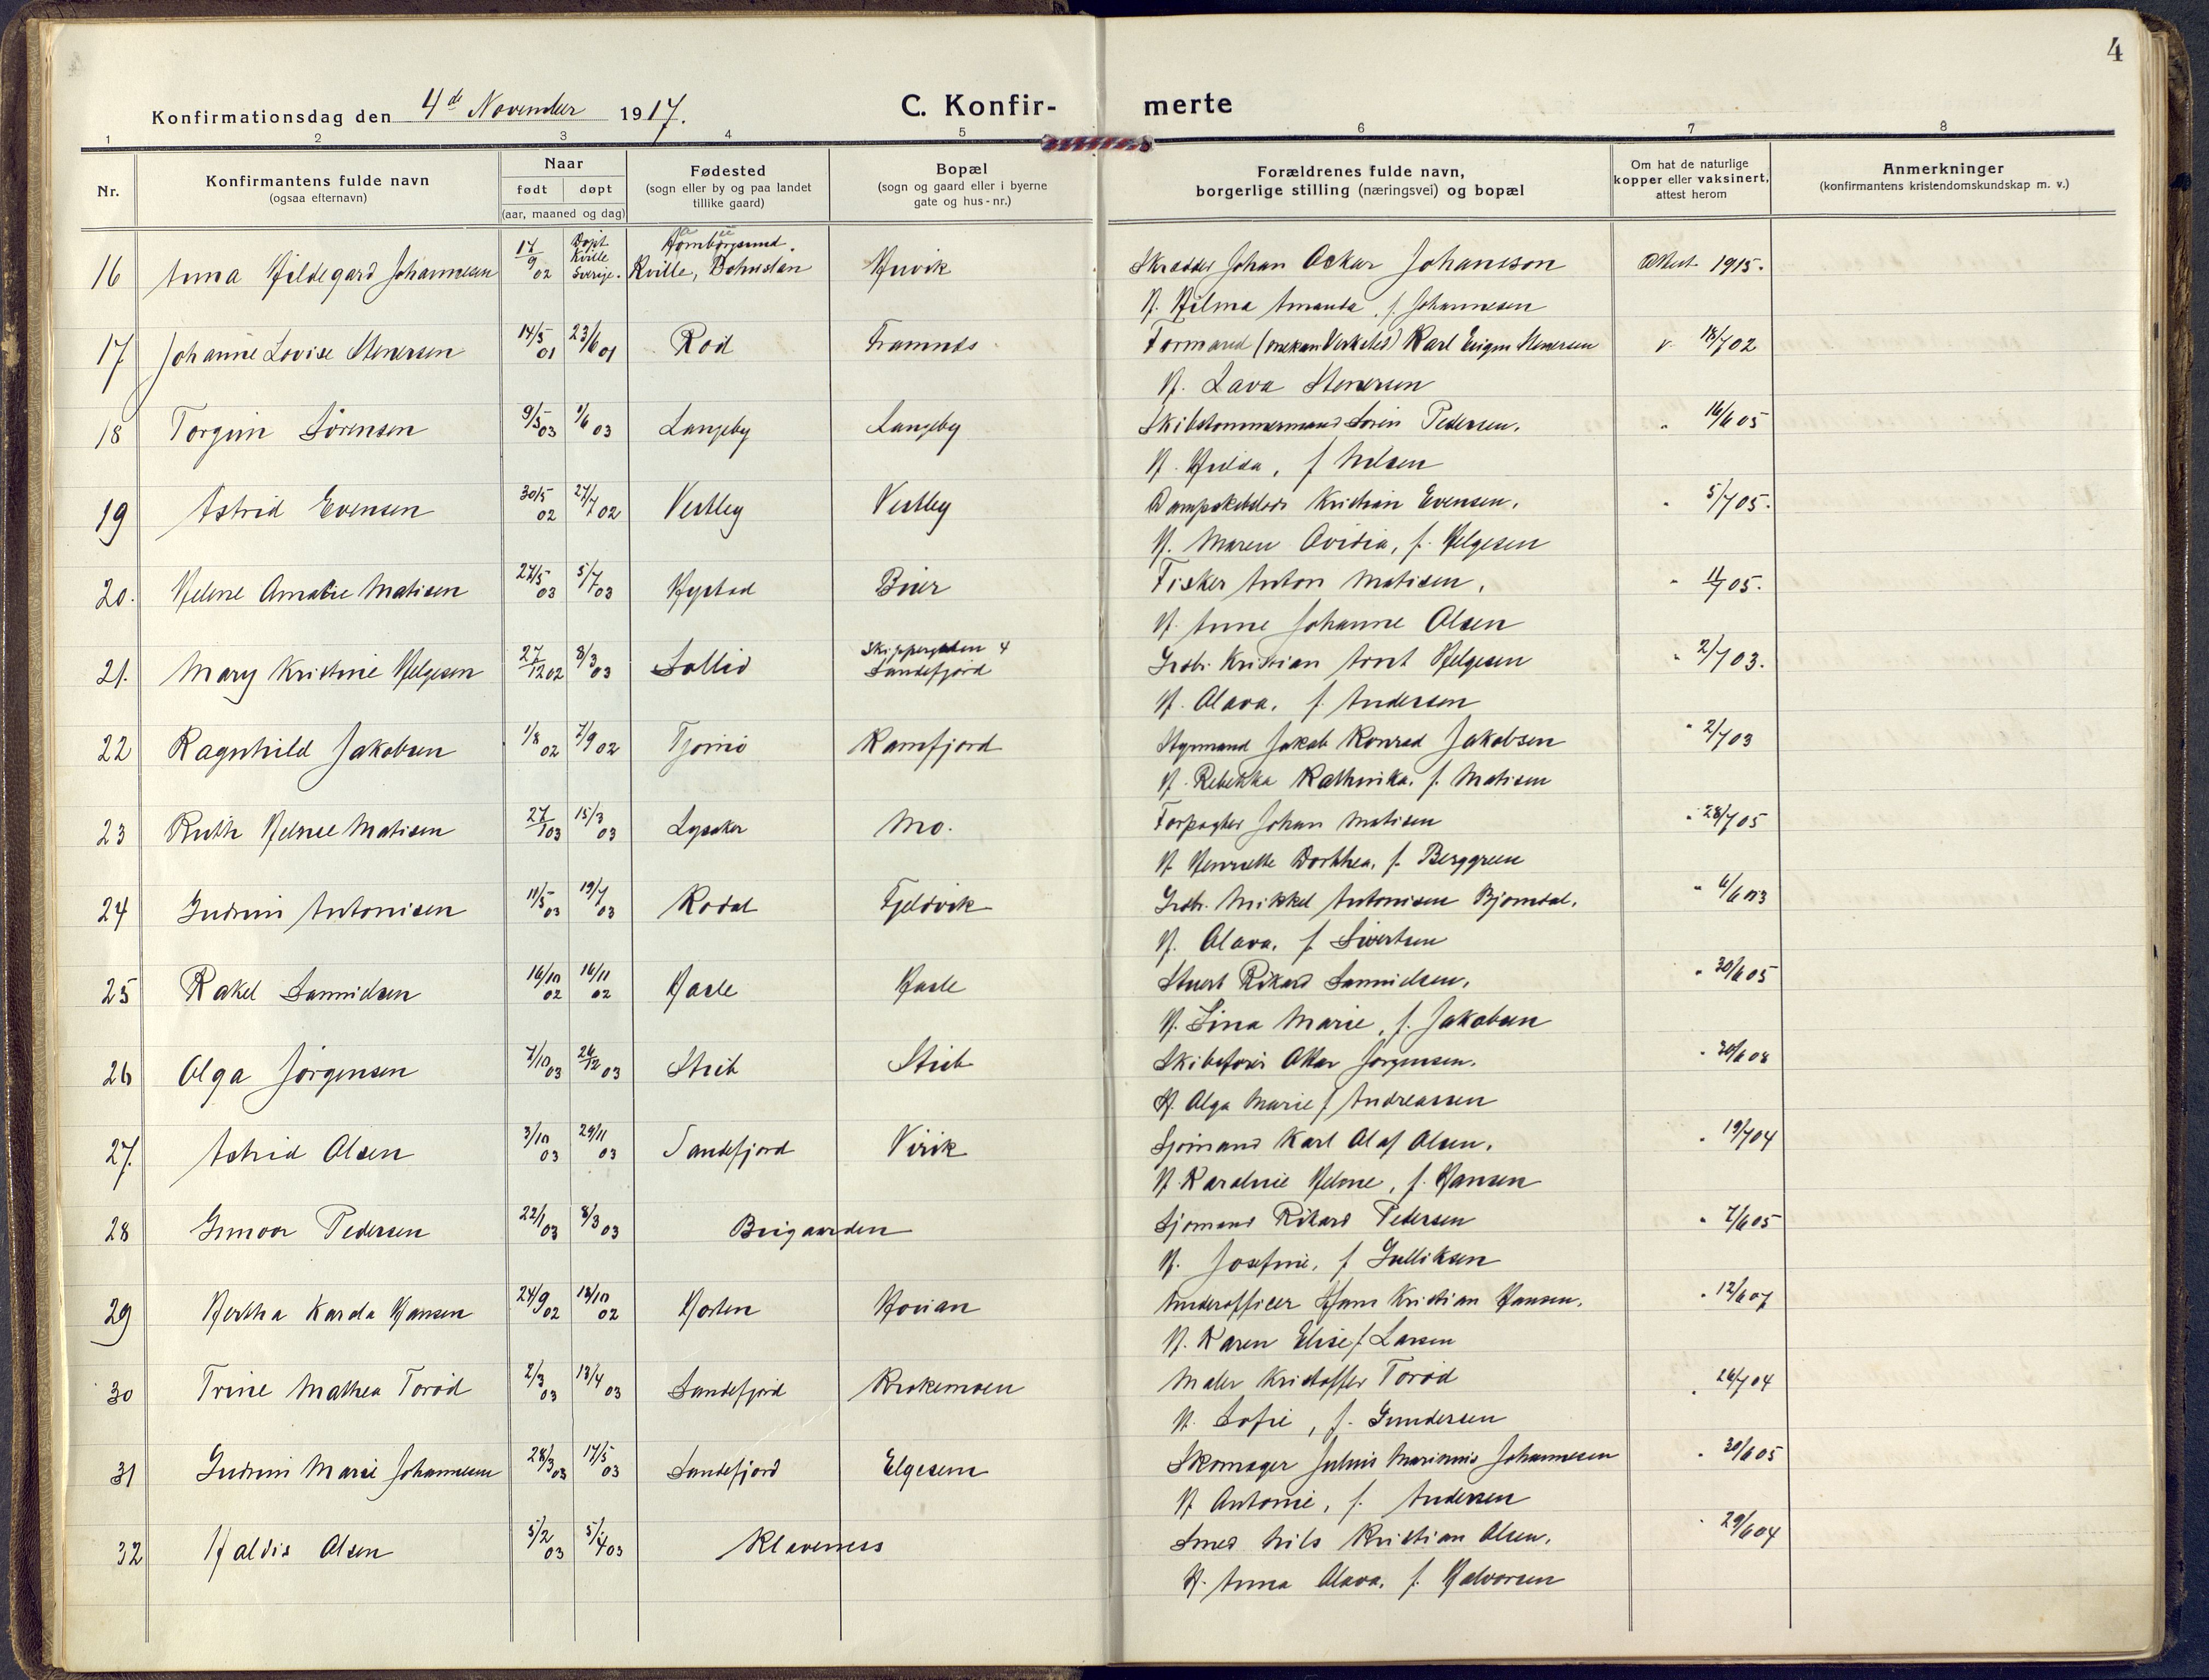 4
Konfirmationsdag den 4de November 1917.
C. Konfir- merte
1 2 3 4 5 6 7 8
Nr.
Konfirmantens fulde navn
(ogsaa efternavn)
Naar
født døpt
(aar, maaned og dag)
Fødested
(sogn eller by og paa landet
tillike gaard)
Bopæl
(sogn og gaard eller i byerne
gate og hus-nr.)
Forældrenes fulde navn,
borgerlige stilling (næringsvei) og bopæl
Om hat de naturlige
kopper eller vaksinert,
attest herom
Anmerkninger
(konfirmantens kristendomskundskap m. v.)
Døpt Kville Sverige.
16 Anna Hildegard Johannesen 17/9 02 Kville, Bohuslän Huvik Skrædder Johan Oskar Johanson Attest 1915.
H. Hilma Amanda, f. Johannesen
17 Johanne Lovise Stenersen 14/5 01 23/6 01 Rød Framnæs Karl Stenersen v. 18/7 02
H. Lava Stenersen
18 Torgun Sørensen 9/3 03 1/6 03 Langeby Langeby Skibstømmermand Søren Pedersen, " 16/6 05
H. Hulda, f Nilsen
19 Astrid Evensen 30/5 02 27/7 02 Vestby Vestby Kristian Evensen, " 5/7 05.
H. Maren Ovidia, f. Helgesen
20. Helene Amalie Matisen 27/5 03 5/7 03 Hystad Buer Fisker Anton Matisen, " 11/7 05.
H. Anne Johanne Olsen
21. Mary Kristine Helgesen 27/12 02 8/3 03 Sollid Skippergaten 4 Sandefjord Grdbr. Kristian Arnt Helgesen " 2/7 03.
H. Olava, f. Andersen
22 Ragnhild Jakobsen 1/8 02 7/9 02 Tjømø Kamfjord Styrmand Jakob Konrad Jakobsen " 2/7 03
H. Rebekka Kathinka, f. Matisen
23 Ruth Helene Matisen 27/1 03 15/3 03 Lysaker Mo. Forpagter Johan Matisen " 28/7 05
H Henriette Dorthea, f. Berggreen
24 Gudrun Antonisen 11/5 03 19/7 03 Rødal Fjeldvik Grdbr. Mikkel Antonisen Bjørndal, " 6/6 03
H. Olava, f. Sivertsen
25 Rakel Samuelsen 16/10 02 16/11 02 Hasle Hasle Stuert Rikard Samuelsen, " 30/6 05
H. Lina Marie, f. Jakobsen
26 Olga Jørgensen 7/10 03 26/12 03 Strib Strib Skibsfører Ottar Jørgensen. " 30/6 08
H. Olga Marie f Andreassen
27. Astrid Olsen 3/10 03 29/11 03 Sandefjord Virik Sjømand Karl Olaf Olsen, " 19/7 04
H. Karoline Helene, f. Hansen
28 Gunvor Pedersen 22/1 03 8/3 03 Bugaarden Sjømand Rikard Pedersen " 7/6 05
H. Josefine, f Gulliksen
29 Hertha Karola Hansen 24/9 02 13/10 02 Horten Hovian Underofficer Hans Kristian Hansen, " 12/6 07
H. Karen Elise f. Larsen
30 Trine Mathea Torød 2/3 03 13/4 03 Sandefjord Krokemoen Maler Kristoffer Torød " 26/7 04
H. Sofie, f. Gundersen
31 Gudrun Marie Johannesen 28/3 03 17/5 03 Sandefjord Elgesem Skomager Julius Marinius Johannesen " 30/6 05
H Antonie, f. Andersen
32 Haldis Olsen 5/2 03 5/4 03 Klavenæss Smed Nils Kristian Olsen, " 29/6 04
H. Anna Olava, f. Halvorsen